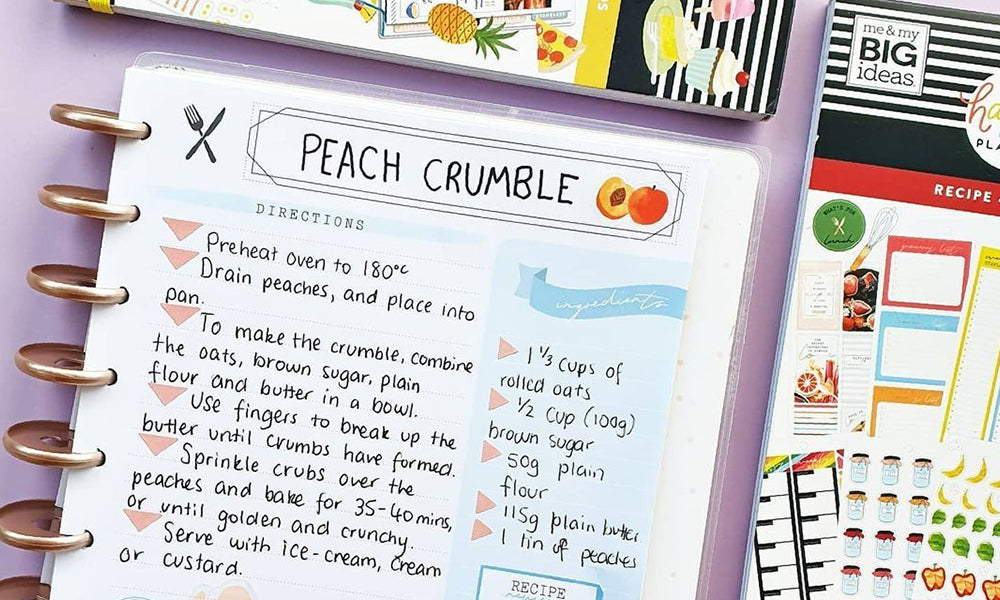 PEACH CRUMBLE
DIRECTIONS
Preheat oven to 180°c
Drain peaches, and place into
pan.
To make the crumble, combine
the oats, brown sugar, plain
flour and butter in a bowl.
Use fingers to break up the
butter until crumbs have formed.
Sprinkle crubs over the
peaches and bake for 35-40mins,
or until golden and crunchy.
Serve with ice-cream, cream
or custard.
ingredients
1 1/3 cups of
rolled oats
1/2 cup (100g)
brown sugar
50g plain
flour
115g plain butter
1 tin of peaches
RECIPE
me & my
BIG
ideas.
RECIPE
WHAT'S FOR
lunch
grocery list